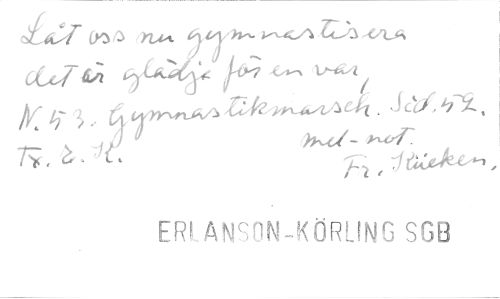 Låt oss nu gymnastisera
det är glädje för en var,
N. 53. Gymnastikmarsch. Sid. 52.
mel-not.
Tx. E. K.
Fr. Kücken.
ERLANSON-KÖRLING SGB